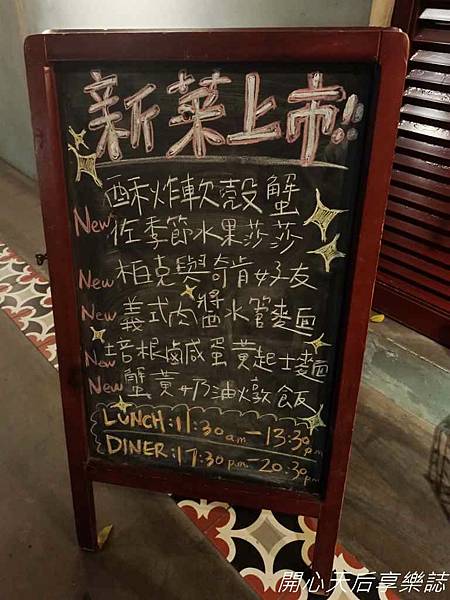 新菜上市!!
酥炸軟殼蟹
New 佐季節水果莎莎
New 柏克與奇肯好友
New 義式肉醬水管麵
New 培根鹹蛋黃起士麵
New 蟹黃奶油燉飯
LUNCH:11:30am-13:30pm
DINER:17:30pm-20:30pm
開心天后享樂誌